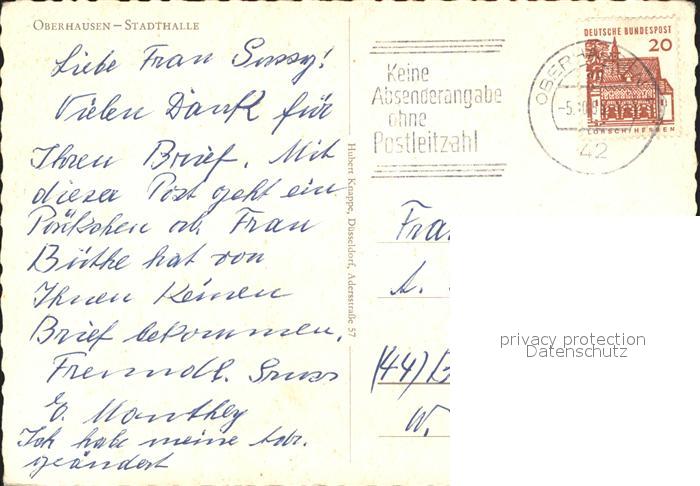 OBERHAUSEN – STADTHALLE
Liebe Frau
Vielen Dank für
Ihren Brief. Mit
dieser Post geht ein
Päckchen ab. Frau
Büthe hat von
Ihnen keinen
Brief bekommen.
Freundl. Gruss
E. Manthey
Ich habe meine Adr.
geändert
Hubert Knappe, Düsseldorf, Adersstraße 57
Keine
Absenderangabe
ohne
Postleitzahl
DEUTSCHE BUNDESPOST
20
LORSCH/HESSEN
OBERHAUSEN
-5.10.
42
Fra
A.
(44) B
W.
privacy protection
Datenschutz